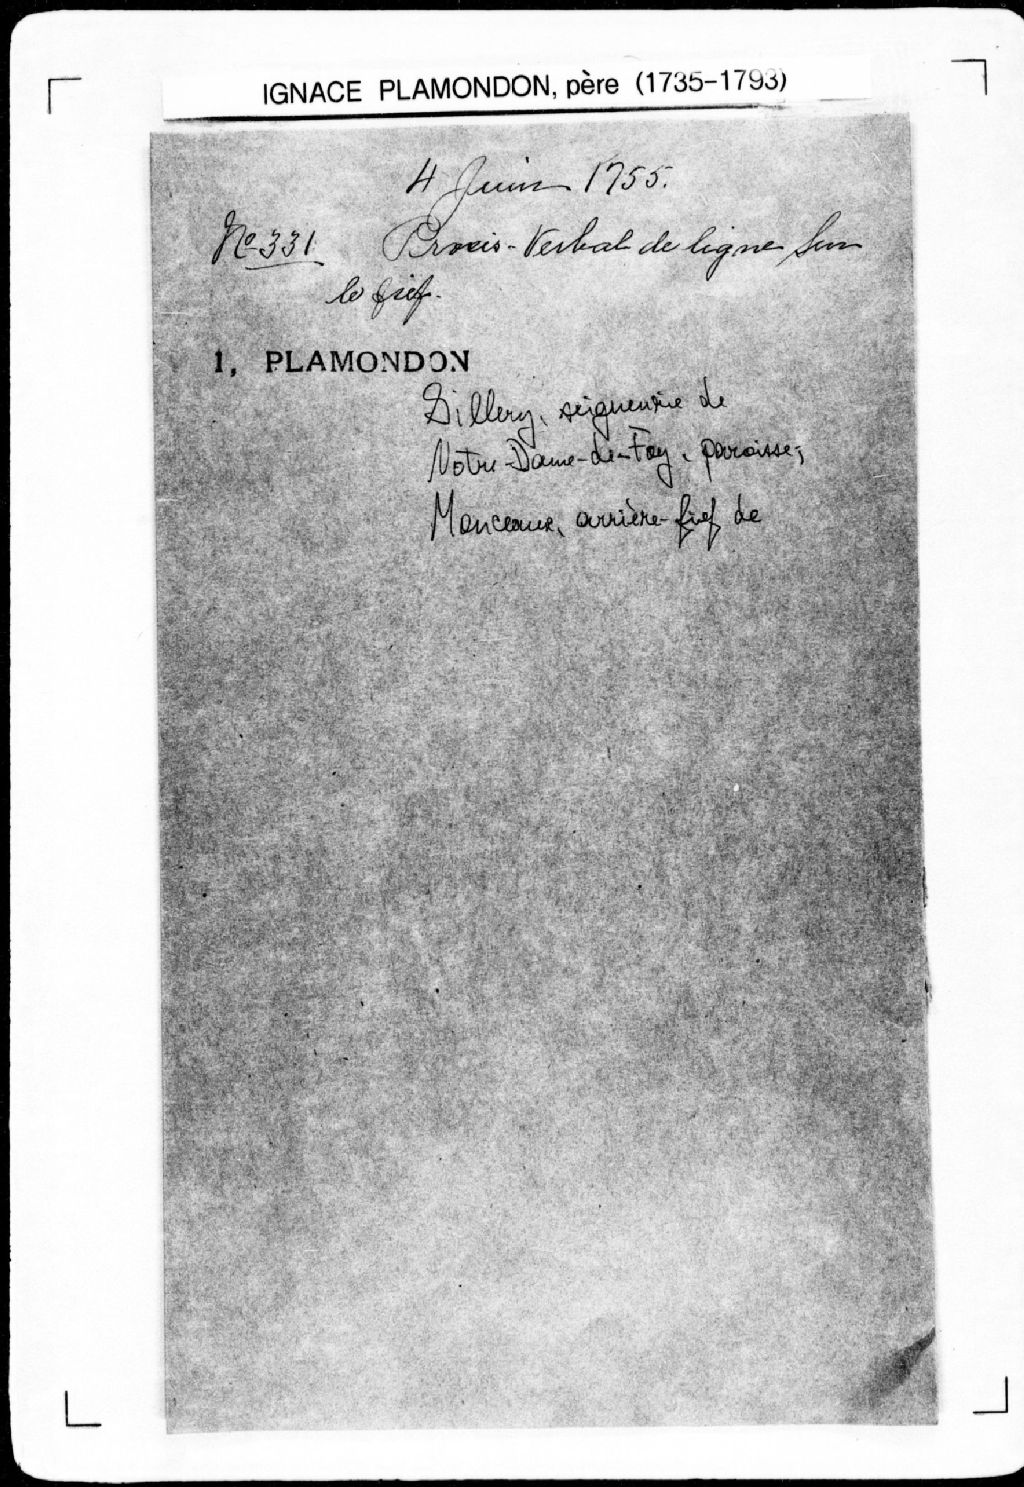 IGNACE PLAMONDON, père (1735-1793)
4 Juin 1755.
No 331 Procis-Verbal de ligne Sur
le fief.
I, PLAMONDON
Sillery, seigneurie de
Notre-Dame-de-Foy, paroisse;
Monceaux, arrière-fief de